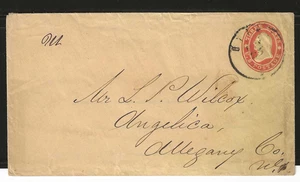 Mr L. P. Wilcox
Angelica,
Allegany Co.
N.Y.